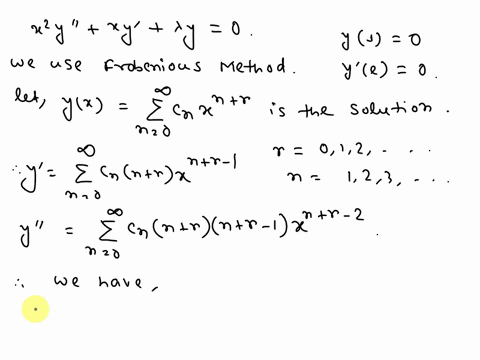 x²y'' + xy' + λy = 0. y(1) = 0
we use Frobenious Method. y'(e) = 0.
let, y(x) = ∑_{n=0}^{∞} c_n x^{n+r} is the solution.
∴ y' = ∑_{n=0}^{∞} c_n (n+r) x^{n+r-1} r = 0,1,2, - ...
n = 1,2,3, ....
y'' = ∑_{n=0}^{∞} c_n (n+r)(n+r-1) x^{n+r-2}.
∴ we have,